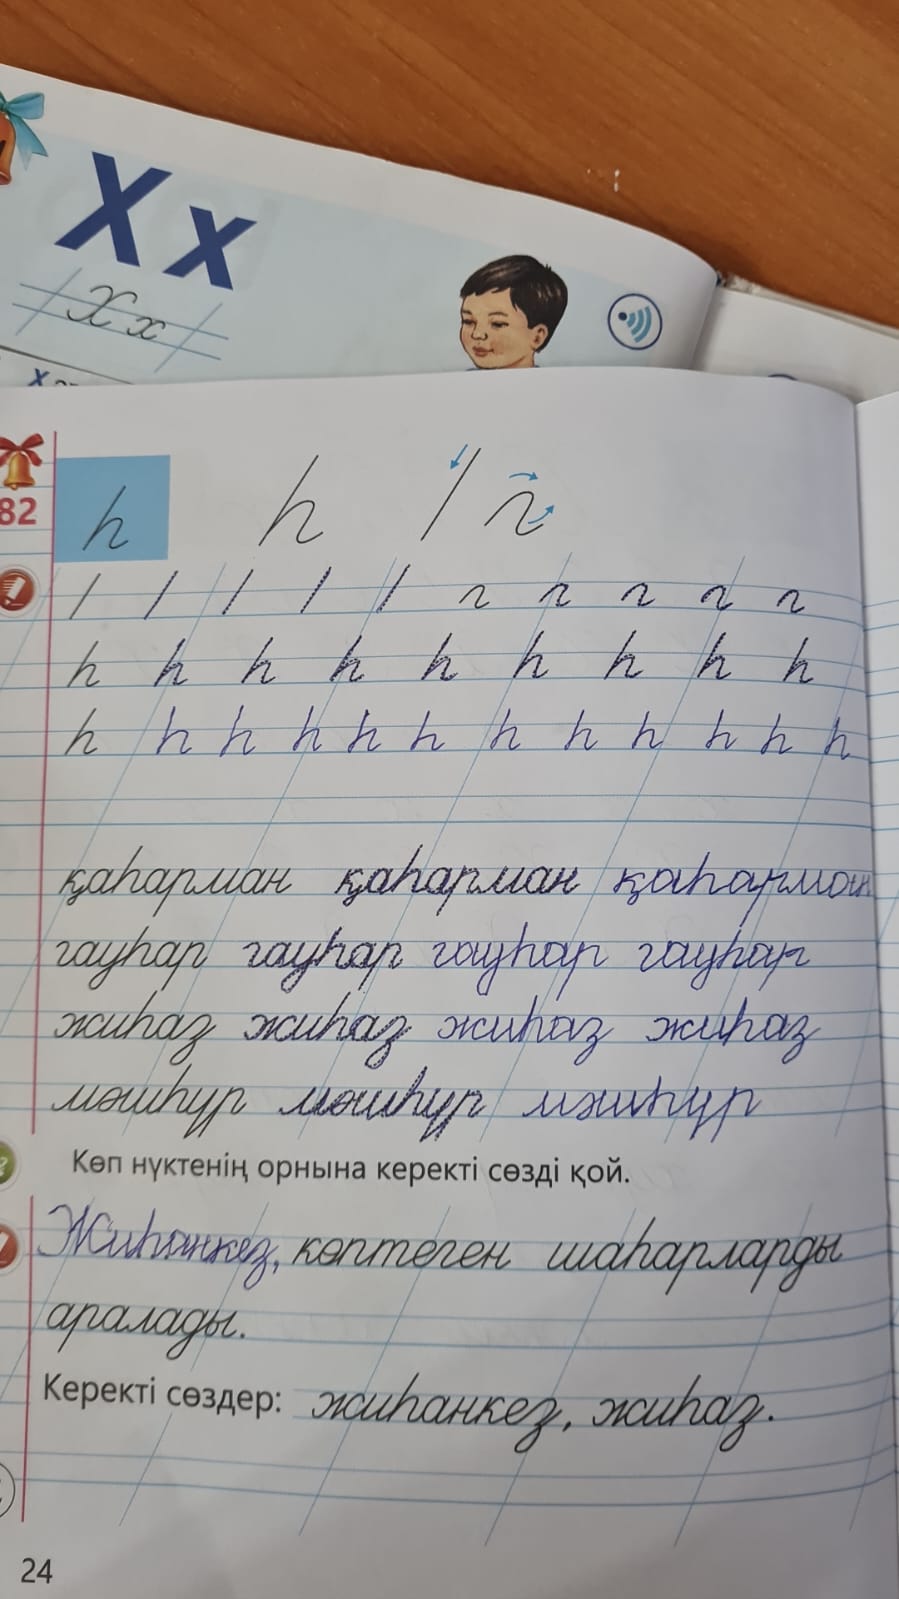 Х х
Х х
82
һ һ
һ һ һ һ һ һ һ һ һ
һ һ һ һ һ һ һ һ һ һ һ һ
қаһарман қаһарман қаһарман
гауһар гауһар гауһар гауһар
жиһаз жиһаз жиһаз жиһаз
мәшһүр мәшһүр мәшһүр
Көп нүктенің орнына керекті сөзді қой.
Жиһанкез, көптеген шаһарларды
аралады.
Керекті сөздер: жиһанкез, жиһаз.
24